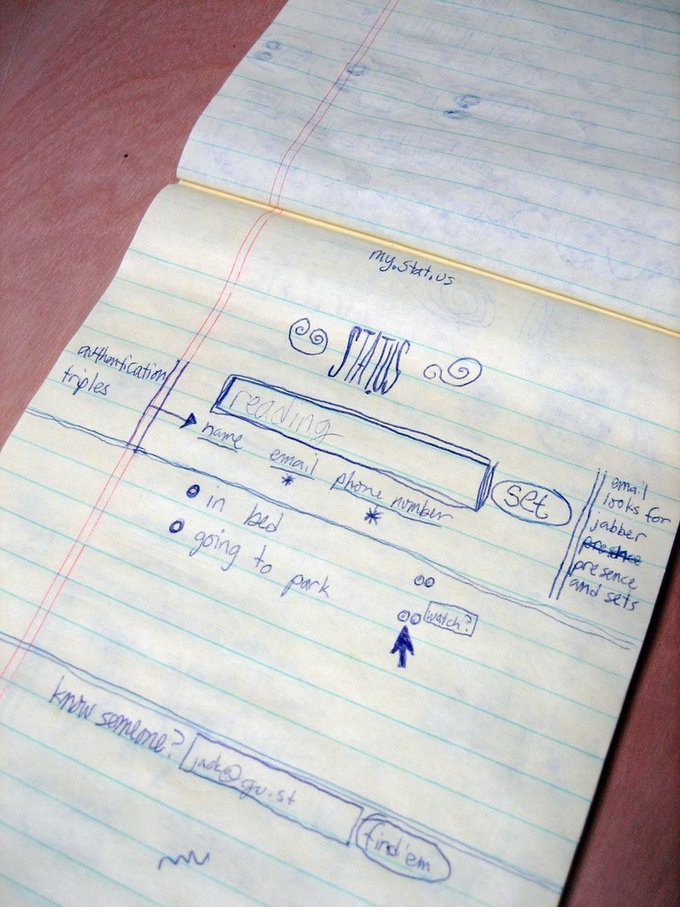 my.stat.us
STATUS
authentication
triples
reading
name
email
phone number
*
*
set
email
looks for
jabber
presence
and sets
in bed
going to park
watch?
know someone?
jack@gu.st
find'em